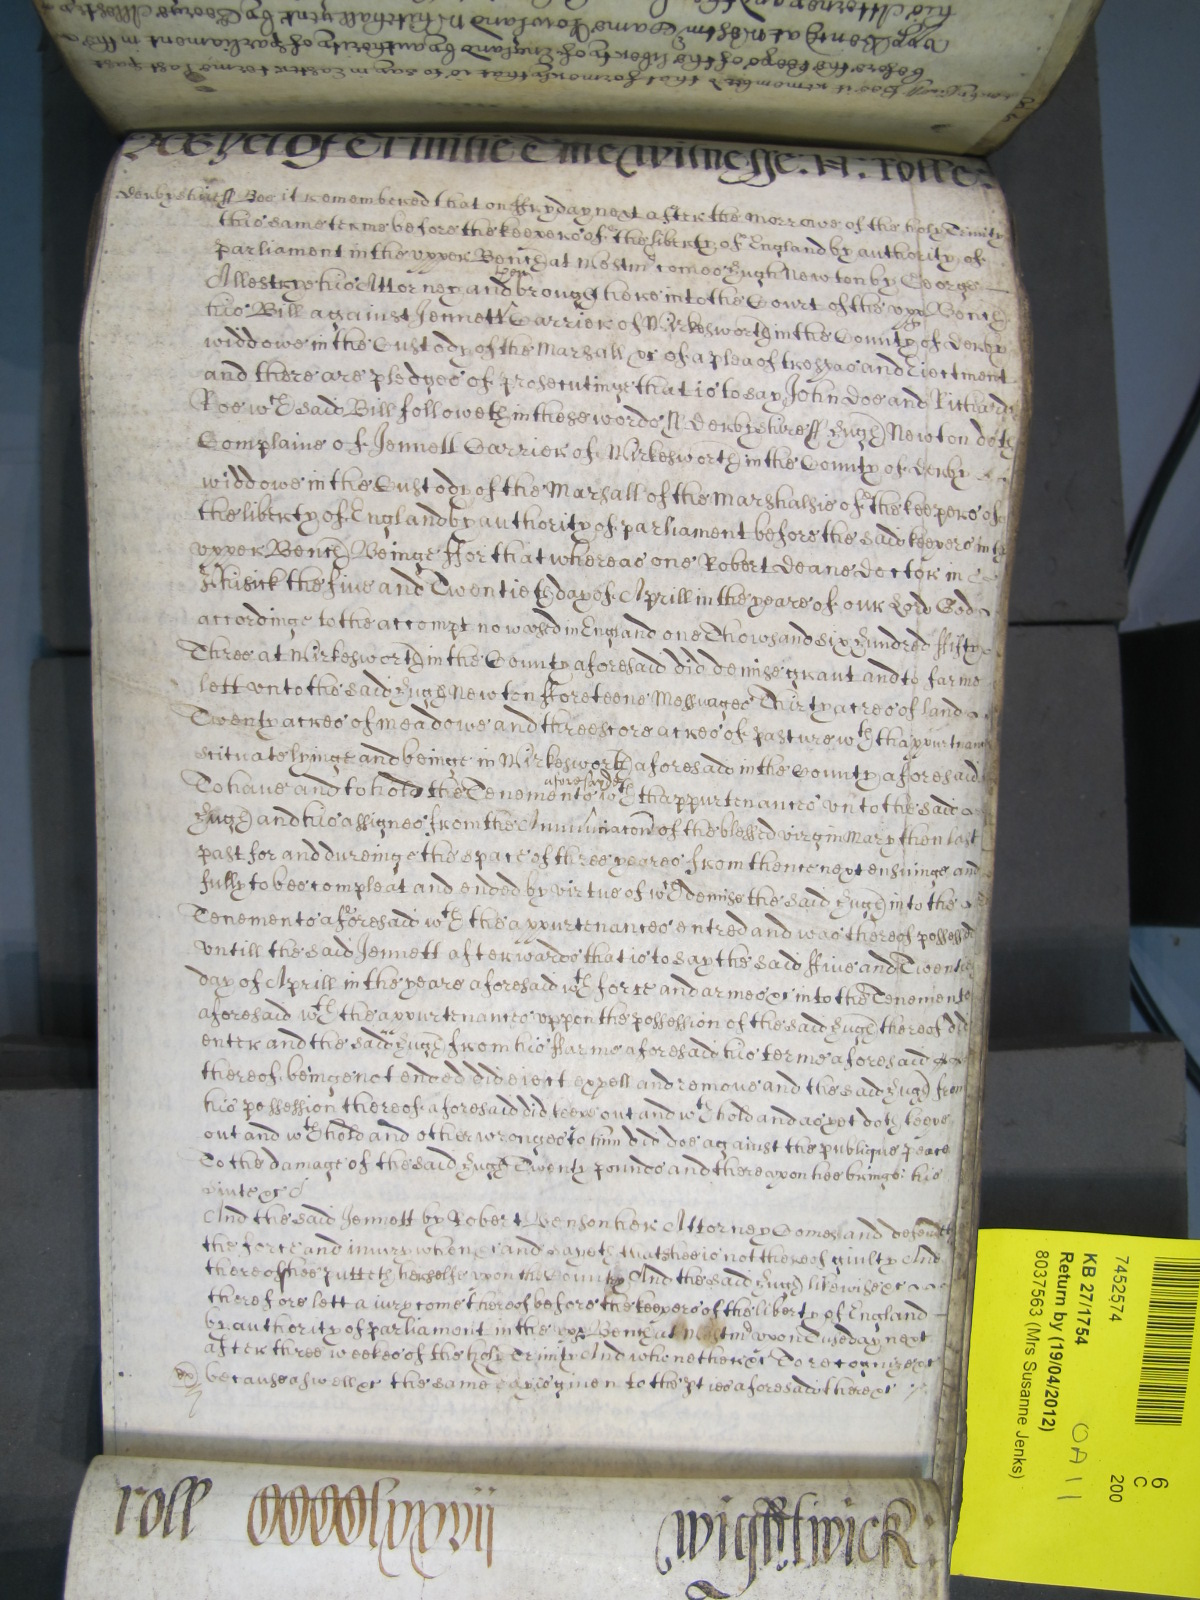 As yet of Trinitie Terme Witnesse. H. Rolle.
Derbyshire ss Bee it remembered that on ffryday next after the morrowe of the holy Trinity
this same terme before the keepers of the liberty of England by authority of
parliament in the upper Bench at Westm come Hugh Newton by George
Allestry his Attorney and brought here into the Court of the upp Bench then
his Bill against Jennett Carrier of Wirkesworth in the County of Derby
widdowe in the Custody of the Marshall &c of a plea of trespas and Ejectment
and there are pledges of prosecutinge that is to say John Doe and Richard
Roe wch said Bill followeth in these words ss Derbyshire ss Hugh Newton doth
Complaine of Jennett Carrier of Wirkesworth in the County of Derby
widdowe in the Custody of the Marshall of the Marshalsie of the keepers of
the liberty of England by authority of parliament before the said keepers in the
upper Bench Beinge ffor that whereas one Robert Deane Doctor in
Phisick the five and Twentieth day of Aprill in the yeare of our Lord God
accordinge to the accompt now used in England one Thowsand six hundred fifty
Three at Wirkesworth in the County aforesaid did demise graunt and to farme
lett unto the said Hugh Newton fforeteene Messuages Thirty acres of land
Twenty acres of meadowe and threescore acres of pasture wth thappurtenances
scituate lyinge and beinge in Wirkesworth aforesaid in the County aforesaid
To have and to hold the Tenements aforesayd wth thappurtenances unto the said
Hugh and his assignes from the Annunciacon of the blessed virgin Mary then last
past for and dureinge the space of three yeares from thence next ensuinge and
fully to bee compleat and ended by virtue of wch demise the said Hugh into the
Tenements aforesaid wth the appurtenances entred and was thereof possessed
untill the said Jennett afterwards that is to say the said ffive and Twentieth
day of Aprill in the yeare aforesaid wth force and armes &c into the Tenements
aforesaid wth the appurtenances uppon the possession of the said Hugh thereof did
enter and the said Hugh from his ffarme aforesaid his terme aforesaid
thereof beinge not ended did eject expell and remove and the said Hugh from
his possession thereof aforesaid did keepe out and wthhold and as yet doth keepe
out and wthhold and other wronges to him did doe against the publique peace
To the damage of the said Hugh Twenty pounds and thereupon hee brings his
suite &c
And the said Jennett by Robert Benson her Attorney Comes and defendeth
the force and injury when &c and sayeth that shee is not thereof guilty And
thereof shee putteth herselfe upon the Country And the said Hugh likewise &c
therefore lett a jury come thereof before the keepers of the liberty of England
by authority of parliament in the upp Bench at Westm upon Tuesday next
after three weekes of the holy Trinity And who neither &c To recognize &c
because aswell &c the same day is given to the pties aforesaid there &c
roll CCCClxxvii Wightwick:
7452574
KB 27/1754
Return by (19/04/2012)
8037563 (Mrs Susanne Jenks)
6
C
200
OA 11